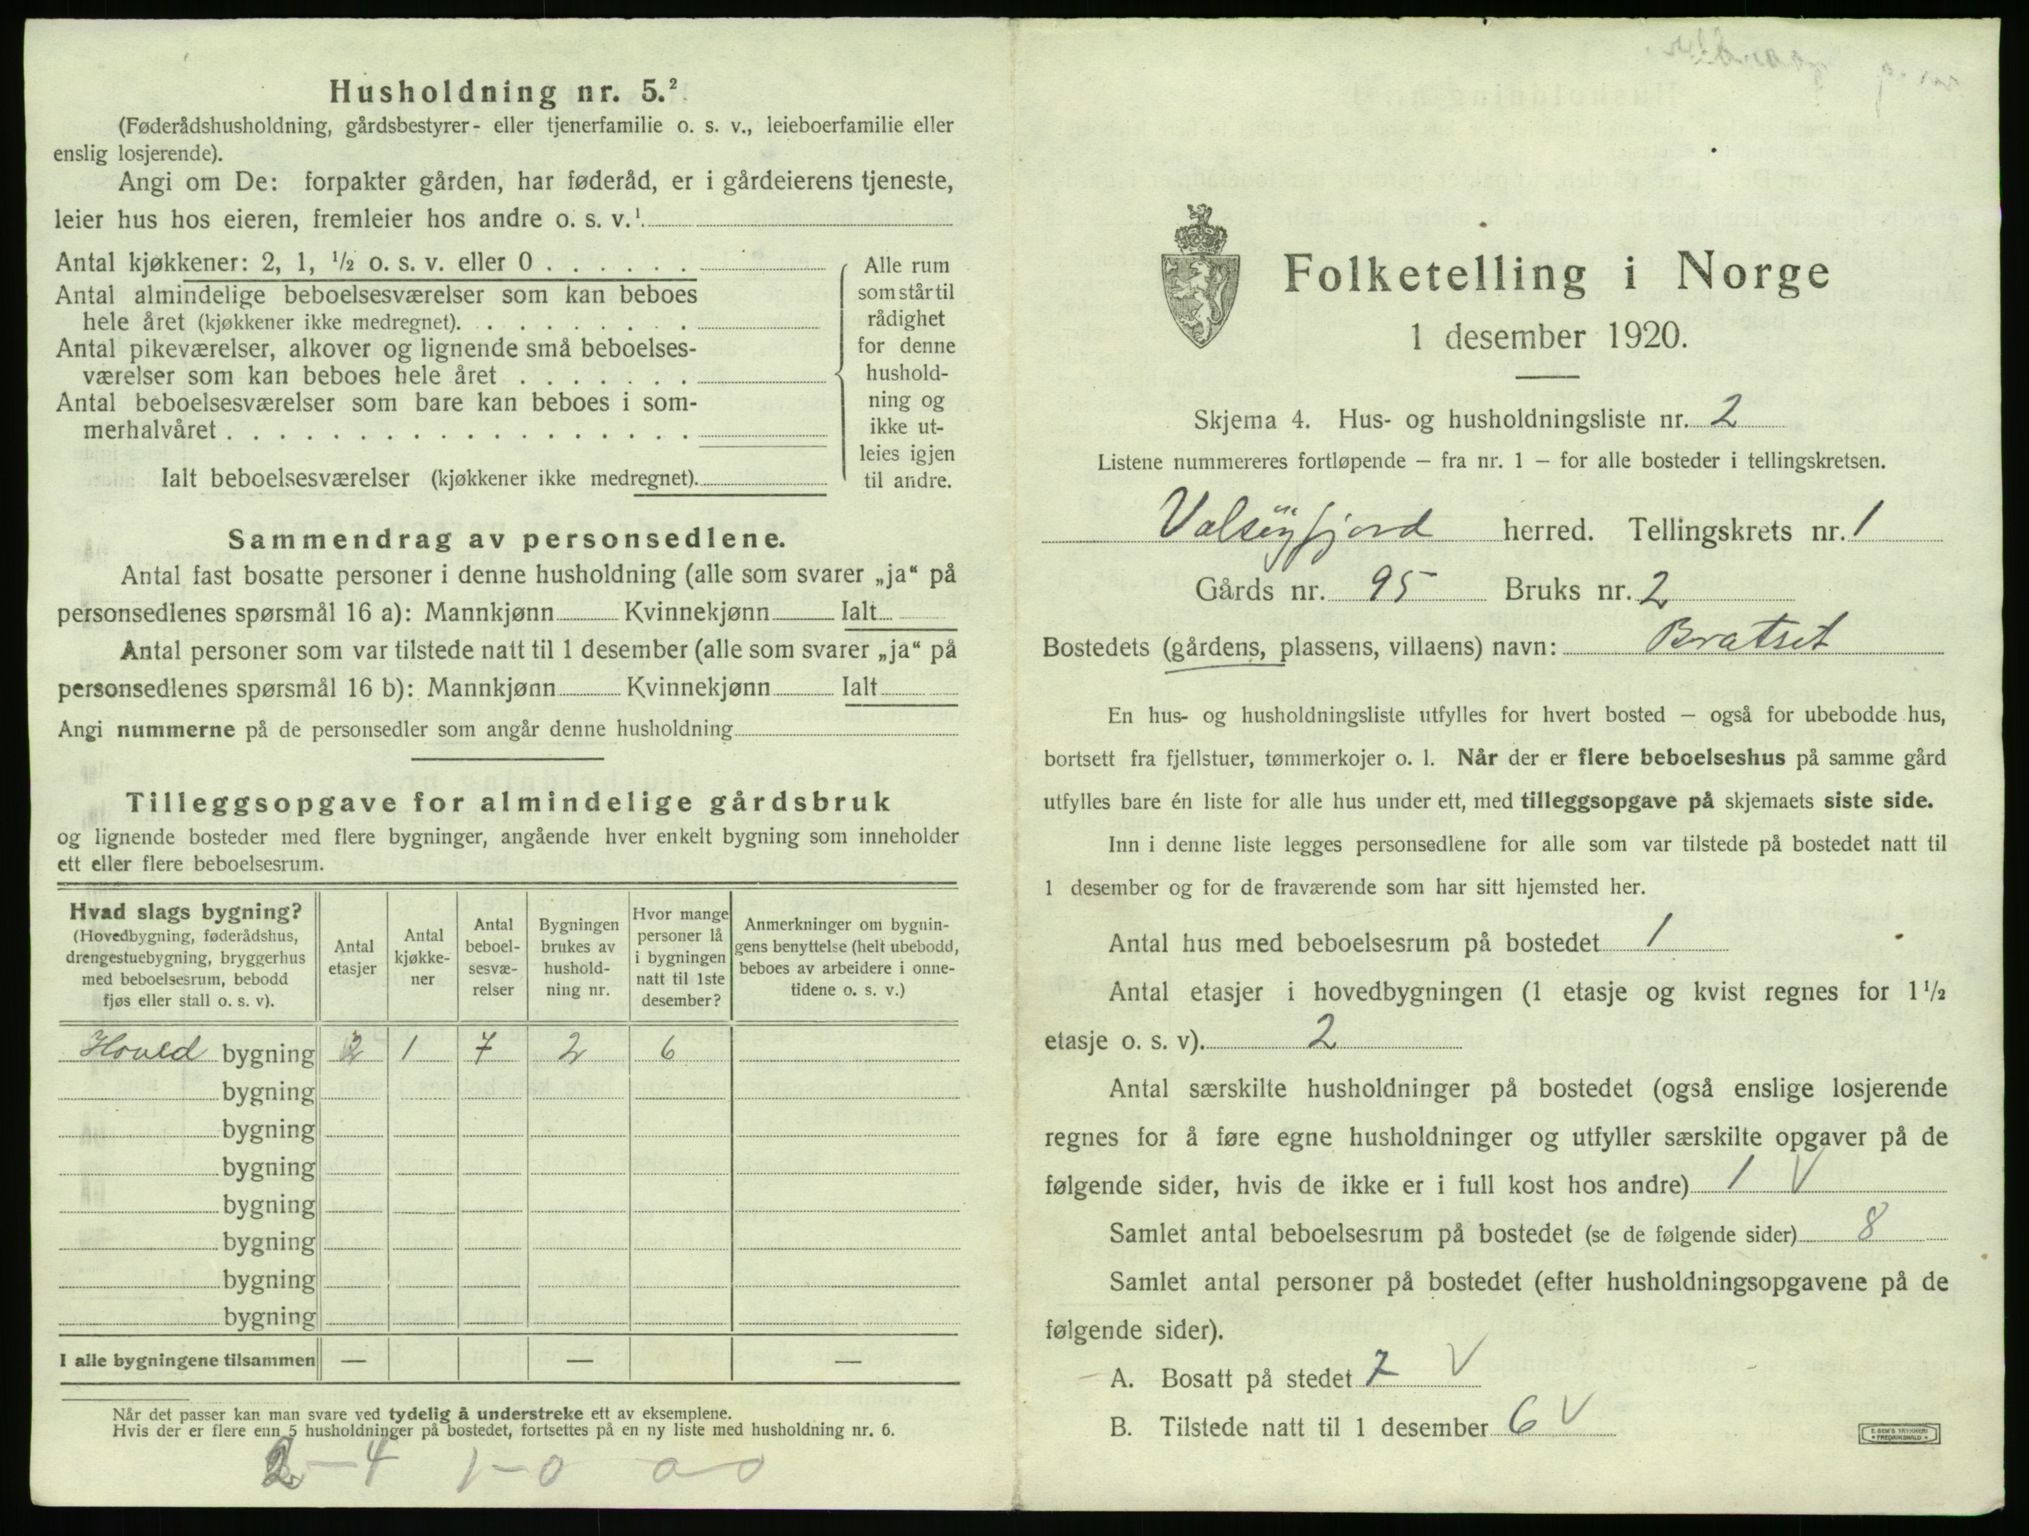 Husholdning nr. 5.²
(Føderådshusholdning, gårdsbestyrer- eller tjenerfamilie o. s. v., leieboerfamilie eller
enslig losjerende).
Angi om De: forpakter gården, har føderåd, er i gårdeierens tjeneste,
leier hus hos eieren, fremleier hos andre o. s. v.¹
Antal kjøkkener: 2, 1, ½ o. s. v. eller 0
Antal almindelige beboelsesværelser som kan beboes
hele året (kjøkkener ikke medregnet).
Antal pikeværelser, alkover og lignende små beboelses-
værelser som kan beboes hele året
Antal beboelsesværelser som bare kan beboes i som-
merhalvåret
Ialt beboelsesværelser (kjøkkener ikke medregnet).
Alle rum
som står til
rådighet
for denne
hushold-
ning og
ikke ut-
leies igjen
til andre.
Sammendrag av personsedlene.
Antal fast bosatte personer i denne husholdning (alle som svarer „ja“ på
personsedlenes spørsmål 16 a): Mannkjønn Kvinnekjønn Ialt
Antal personer som var tilstede natt til 1 desember (alle som svarer „ja“ på
personsedlenes spørsmål 16 b): Mannkjønn Kvinnekjønn Ialt
Angi nummerne på de personsedler som angår denne husholdning
Tilleggsopgave for almindelige gårdsbruk
og lignende bosteder med flere bygninger, angående hver enkelt bygning som inneholder
ett eller flere beboelsesrum.
Hvad slags bygning?
(Hovedbygning, føderådshus,
drengestuebygning, bryggerhus
med beboelsesrum, bebodd
fjøs eller stall o. s. v).
Antal
etasjer
Antal
kjøkke-
ner
Antal
beboel-
sesvæ-
relser
Bygningen
brukes av
hushold-
ning nr.
Hvor mange
personer lå
i bygningen
natt til 1ste
desember?
Anmerkninger om bygnin-
gens benyttelse (helt ubebodd,
beboes av arbeidere i onne-
tidene o. s. v.)
Hoved bygning 2 1 7 2 6
bygning
bygning
bygning
bygning
bygning
bygning
bygning
I alle bygningene tilsammen — — —
Når det passer kan man svare ved tydelig å understreke ett av eksemplene.
Hvis der er flere enn 5 husholdninger på bostedet, fortsettes på en ny liste med husholdning nr. 6.
2-4 1-0 0-0
Folketelling i Norge
1 desember 1920.
Skjema 4. Hus- og husholdningsliste nr. 2
Listene nummereres fortløpende — fra nr. 1 — for alle bosteder i tellingskretsen.
Valsöyfjord herred. Tellingskrets nr. 1
Gårds nr. 95 Bruks nr. 2
Bostedets (gårdens, plassens, villaens) navn: Bratset
En hus- og husholdningsliste utfylles for hvert bosted — også for ubebodde hus,
bortsett fra fjellstuer, tømmerkojer o. l. Når der er flere beboelseshus på samme gård
utfylles bare én liste for alle hus under ett, med tilleggsopgave på skjemaets siste side.
Inn i denne liste legges personsedlene for alle som var tilstede på bostedet natt til
1 desember og for de fraværende som har sitt hjemsted her.
Antal hus med beboelsesrum på bostedet 1
Antal etasjer i hovedbygningen (1 etasje og kvist regnes for 1½
etasje o. s. v). 2
Antal særskilte husholdninger på bostedet (også enslige losjerende
regnes for å føre egne husholdninger og utfyller særskilte opgaver på de
følgende sider, hvis de ikke er i full kost hos andre) 1 V
Samlet antal beboelsesrum på bostedet (se de følgende sider) 8
Samlet antal personer på bostedet (efter husholdningsopgavene på de
følgende sider).
A. Bosatt på stedet 7 V
B. Tilstede natt til 1 desember 6 V
E. SEM'S TRYKKERI
FREDRIKSHALD